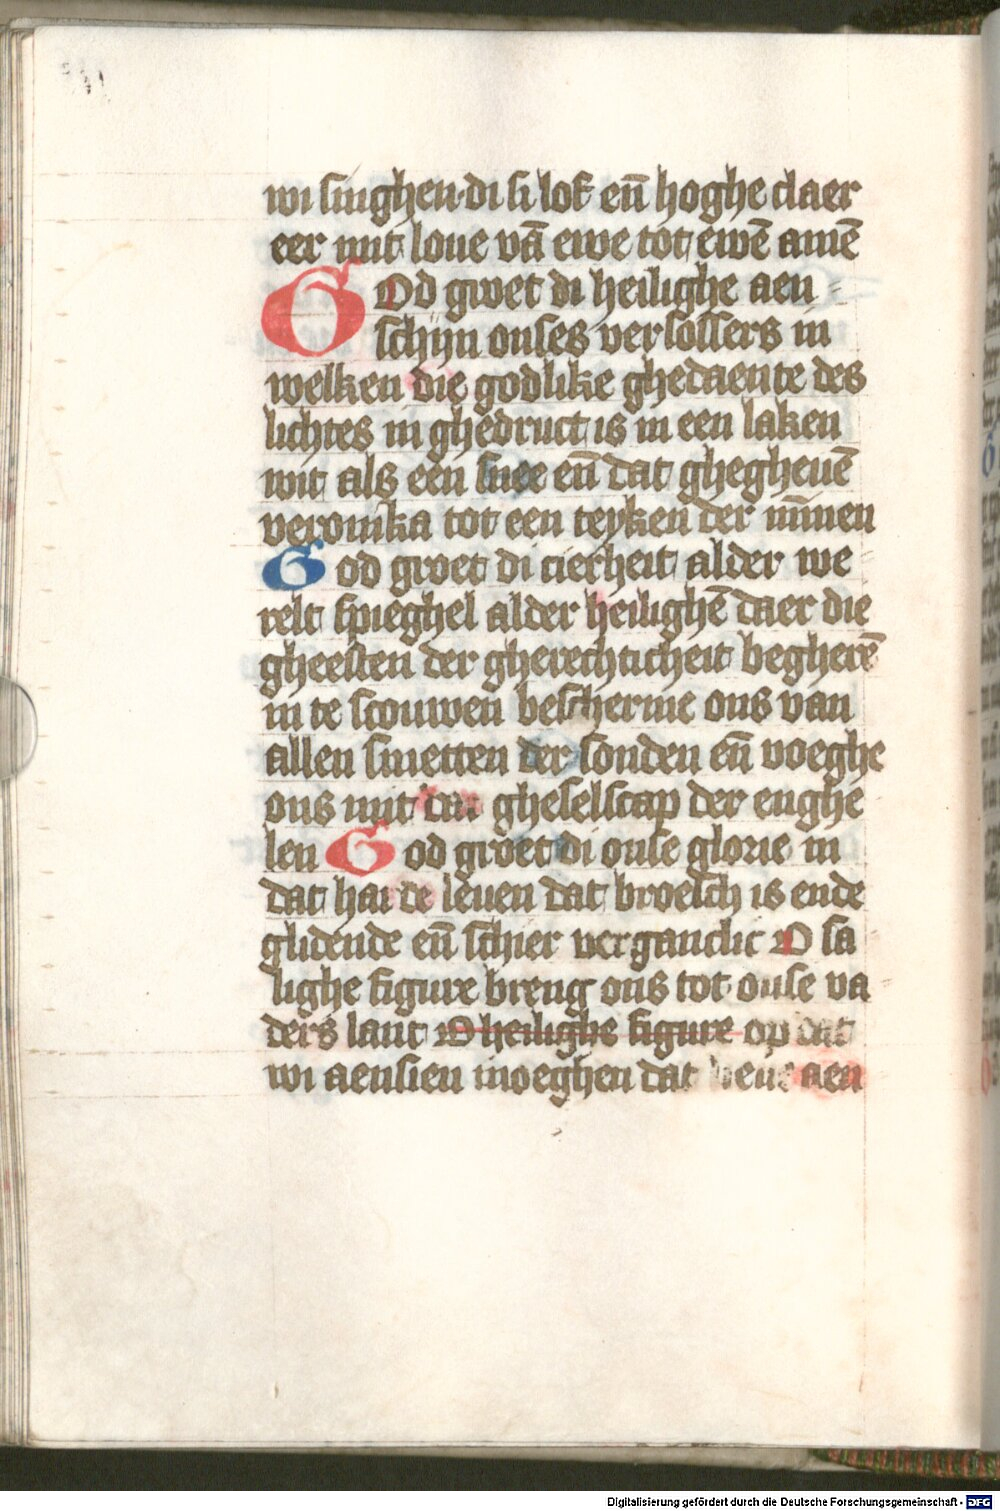 wi singhen·di si lof en̄ hoghe claer
eer mit loue vā ewe tot ewē amē
GOd gruet di heilighe aen
schijn onses verlossers in
welken die godlike ghedaente des
lichtes in ghedruct is in een laken
wit als een snee en̄ dat ghegheuē
veronika tot een teyken der mīnen
God gruet di cierheit alder we
relt spieghel alder heilighē daer die
gheesten der gherechticheit begherē
in te scouwen bescherme ons van
allen smetten der sonden en̄ voeghe
ons mit gheselscap der enghe
len God gruet di onse glorie in
dat harde leuen dat broesch is ende
glidende en̄ schier verganclic O sa
lighe figure breng ons tot onse va
ders lant O heilighe figure op dat
wi aensien moeghen dat aen
Digitalisierung gefördert durch die Deutsche Forschungsgemeinschaft - DFG